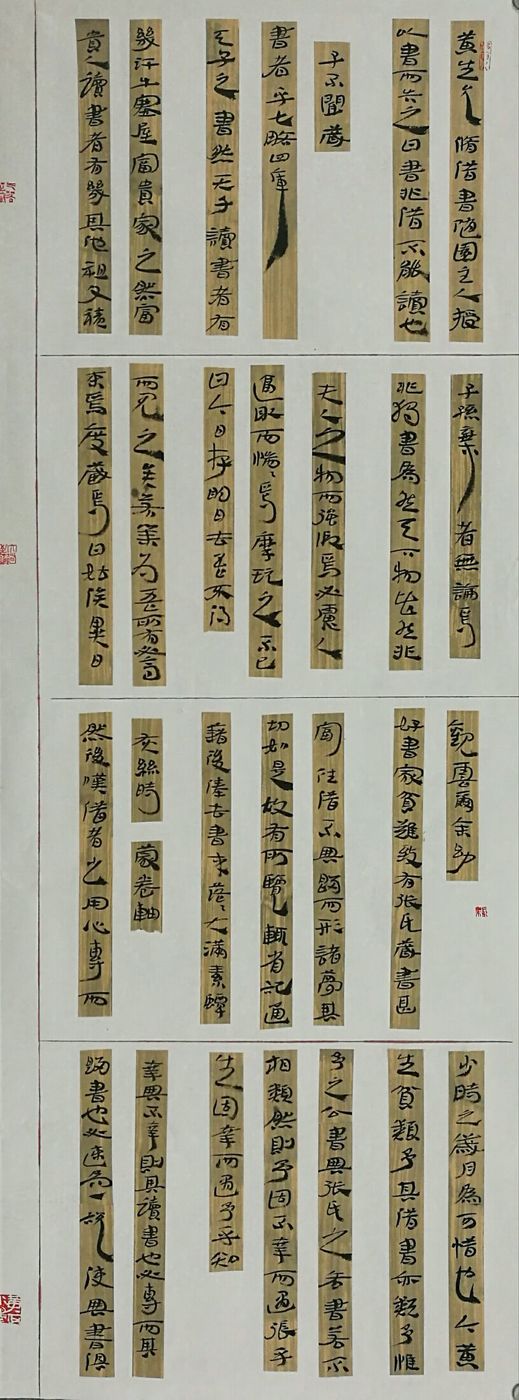 黃生允脩借書隨園主人授
以書而告之曰書非借不能讀也
子不聞藏
書者乎七略四庫
天子之書然天子讀書者有
幾汗牛塞屋富貴家之然富
貴人讀書者有幾其他祖父積
子孫棄者無論焉
非獨書為然天下物皆然非
夫人之物而強假焉必慮人
逼取而惴惴焉摩玩之不已
曰今日存明日去吾不得
而見之矣若業為吾所有必高
束焉庋藏焉曰姑俟異日
觀雲爾余幼
好書家貧難致有張氏藏書甚
富往借不與歸而形諸夢其
切如是故有所覽輒省記通
籍後俸去書來落落大滿素蟫
灰絲時蒙卷軸
然後嘆借者之用心專而
少時之歲月為可惜也今黃
生貧類予其借書亦類予惟
予之公書與張氏之吝書若不
相類然則予固不幸而遇張乎
生固幸而遇予乎知
幸與不幸則其讀書也必專而其
歸書也必速為一說使與書俱